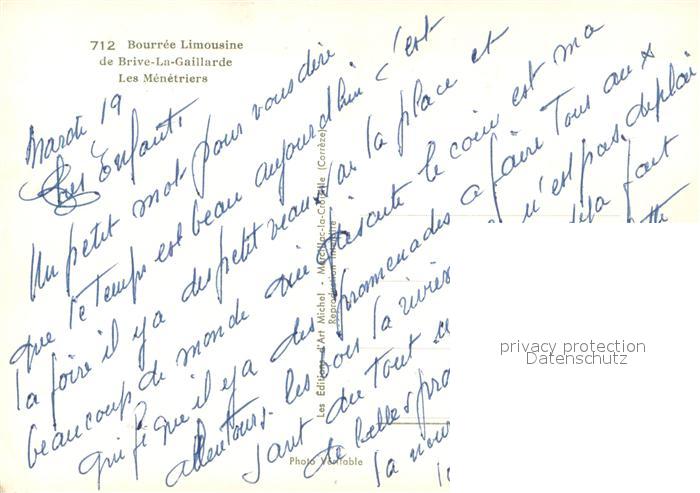 712 Bourrée Limousine
de Brive-La-Gaillarde
Les Ménétriers
Mardi 19
Chers Enfants,
Un petit mot pour vous dire
que le temps est beau aujourd'hui c'est
la foire il y a des petit veaux sur la place et
beaucoup de monde le coin est ma
qui il y a des promenades a faire tous aux
alentours les la rivière n'est pas déplai
sant du tout déjà fait
de belles pro
la
Les Éditions d'Art Michel - Marcillac-la-Croisille (Corrèze)
Reproduction interdite
Photo Véritable
privacy protection
Datenschutz